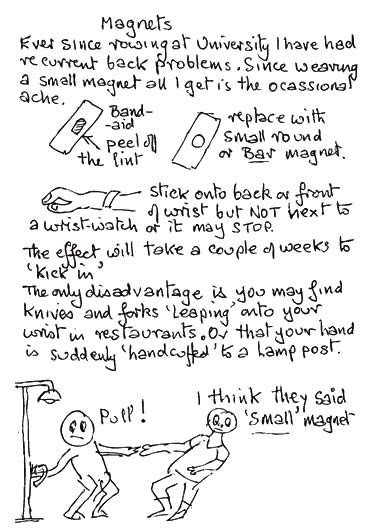 Magnets
Ever since rowing at University I have had
recurrent back problems. Since wearing
a small magnet all I get is the ocassional
ache.
Band-
-aid
peel off
the lint
replace with
small round
or Bar magnet.
stick onto back or front
of wrist but NOT next to
a wrist-watch or it may STOP.
The effect will take a couple of weeks to
'Kick in'
The only disadvantage is you may find
Knives and forks 'leaping' onto your
wrist in restaurants. Or that your hand
is suddenly 'handcuffed' to a lamp post.
Pull!
I think they said
'Small' magnet